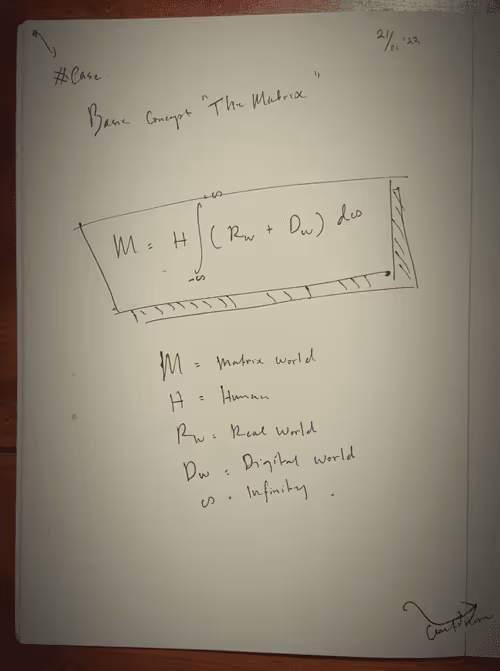 21/01 '22
#Case
Basic Concept "The Matrix"
+∞
M = H ∫ (Rw + Dw) d∞
-∞
M = Matrix world
H = Human
Rw = Real World
Dw = Digital world
∞ = Infinity.